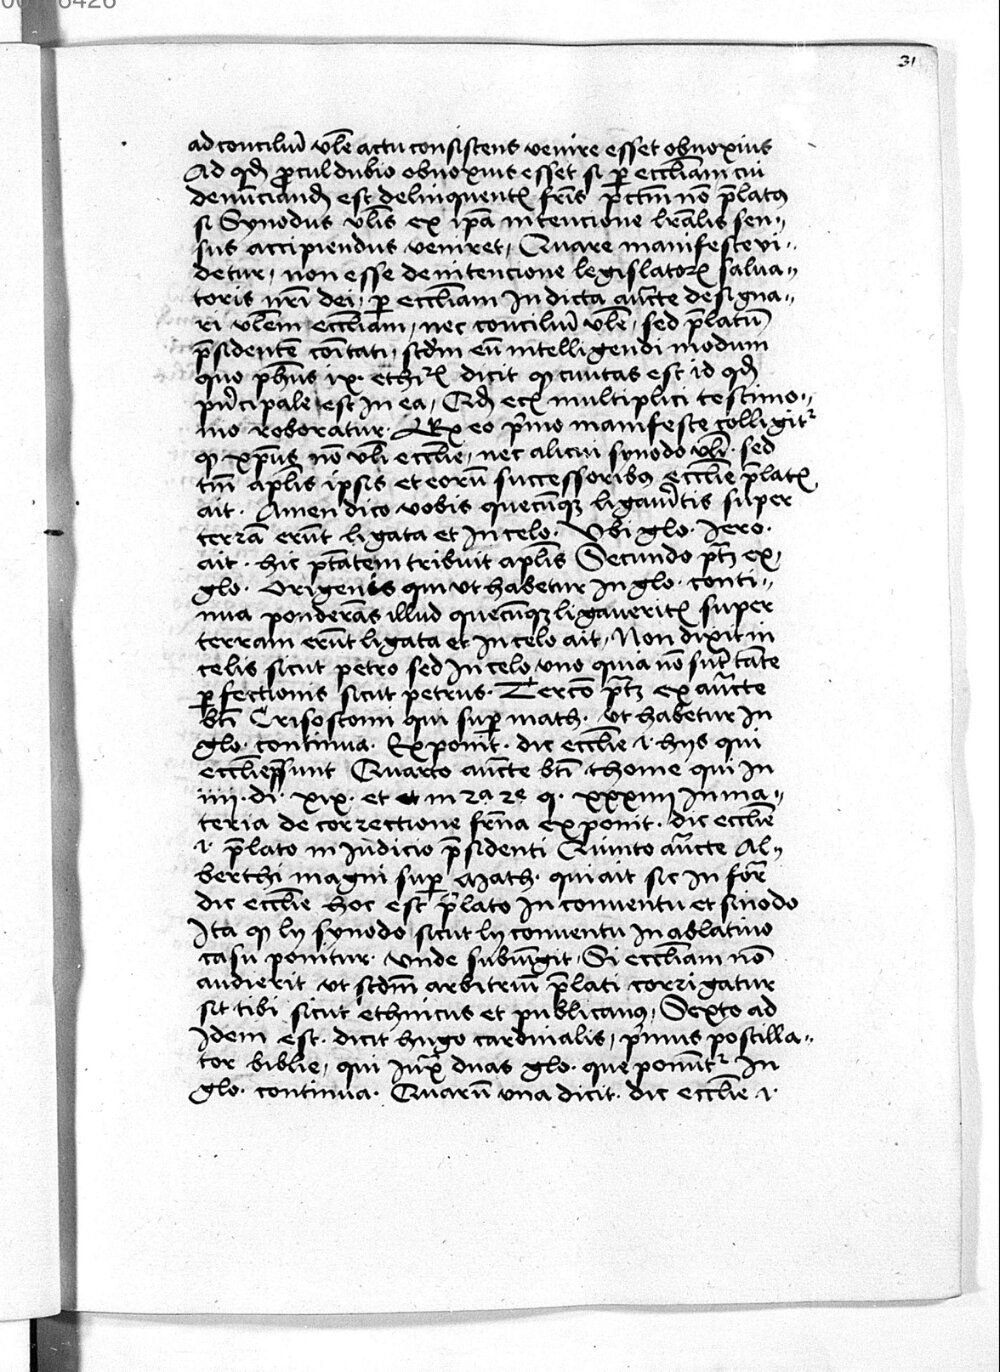 31
ad conciliū vłe actu consistens venire esset obnoxius
Ad qđ proculdubio obnoxius esset si ꝑ eccłiam cui
denūciandū est delinquentꝭ fr̄is pctm̄ nō p̄latꝰ
si Synodus vłis ex ip̄a intencione lr̄alis sen„
sus accipiendus veniret, Quare manifeste vi„
detur, non esse de intencione legislatorꝭ salua„
toris nr̄i dei, ꝑ eccłiam In dicta auc̄te designa„
ri vłem eccłiam, nec conciliū vłe, sed p̄latū
p̄sidentē cōitati, scđm eū intelligendi modum
quo ph̄us ix. ethiꝭ dicit ꝙ ciuitas est id qđ
pⁱncipale est In ea, Qđ ecꝭ multiplici testimo„
nio roboratur. Ex eo pⁱmo manifeste colligitᷣ
ꝙ xp̄us nō vłi eccłie, nec alicui synodo vłi. sed
tm̄ apłis ipsis et eorū successoribꝫ eccłie p̄latꝭ
ait. Amen dico vobis quecūqꝫ ligauītis super
terrā erūt ligata et In celo. Vbi glo. Iero.
ait. hic ptātem tribuit apłis Secundo ptꝫ ex
glo. Origenis qui vt habetur In glo. conti„
nua ponderās illud quecūqꝫ ligaueritꝭ super
terram erūt ligata et In celo ait, Non dixit in
celis sicut petro sed In celo vno quia nō sūt tāte
ꝑfectionis sicut petrus. Tercō ptꝫ ex auc̄te
bti Crisostomi qui suꝑ math. vt habetur In
glo. continua. Exponit. dic eccłie .i. hys qui
eccłie p̄sunt Quarto auc̄te bti thome qui In
iiij. di. xix. et in 2a 2e q. xxxiij In ma„
teria de correctione fr̄na exponit. dic eccłie
.i. p̄lato in Iudicio p̄sidenti Quinto auc̄te Al„
berthi magni suꝑ Math. qui ait sic In for̄
dic eccłie hoc est p̄lato In conuentu et sinodo
Ita ꝙ ly synodo sicut ly conuentu In ablatiuo
casu ponitur. Vnde subiūgit, Si eccłiam nō
audierit vt scđm arbitriū p̄lati corrigatur
sit tibi sicut ethnicus et publicanꝰ, Sexto ad
Idem est. dicit hugo cardinalis, pⁱmus postilla„
tor biblie, qui duas glo. que ponūtᷣ In
glo. continua. Quarū vna dicit. dic eccłie .i.